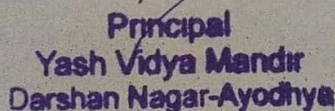 Principal
Yash Vidya Mandir
Darshan Nagar-Ayodhya